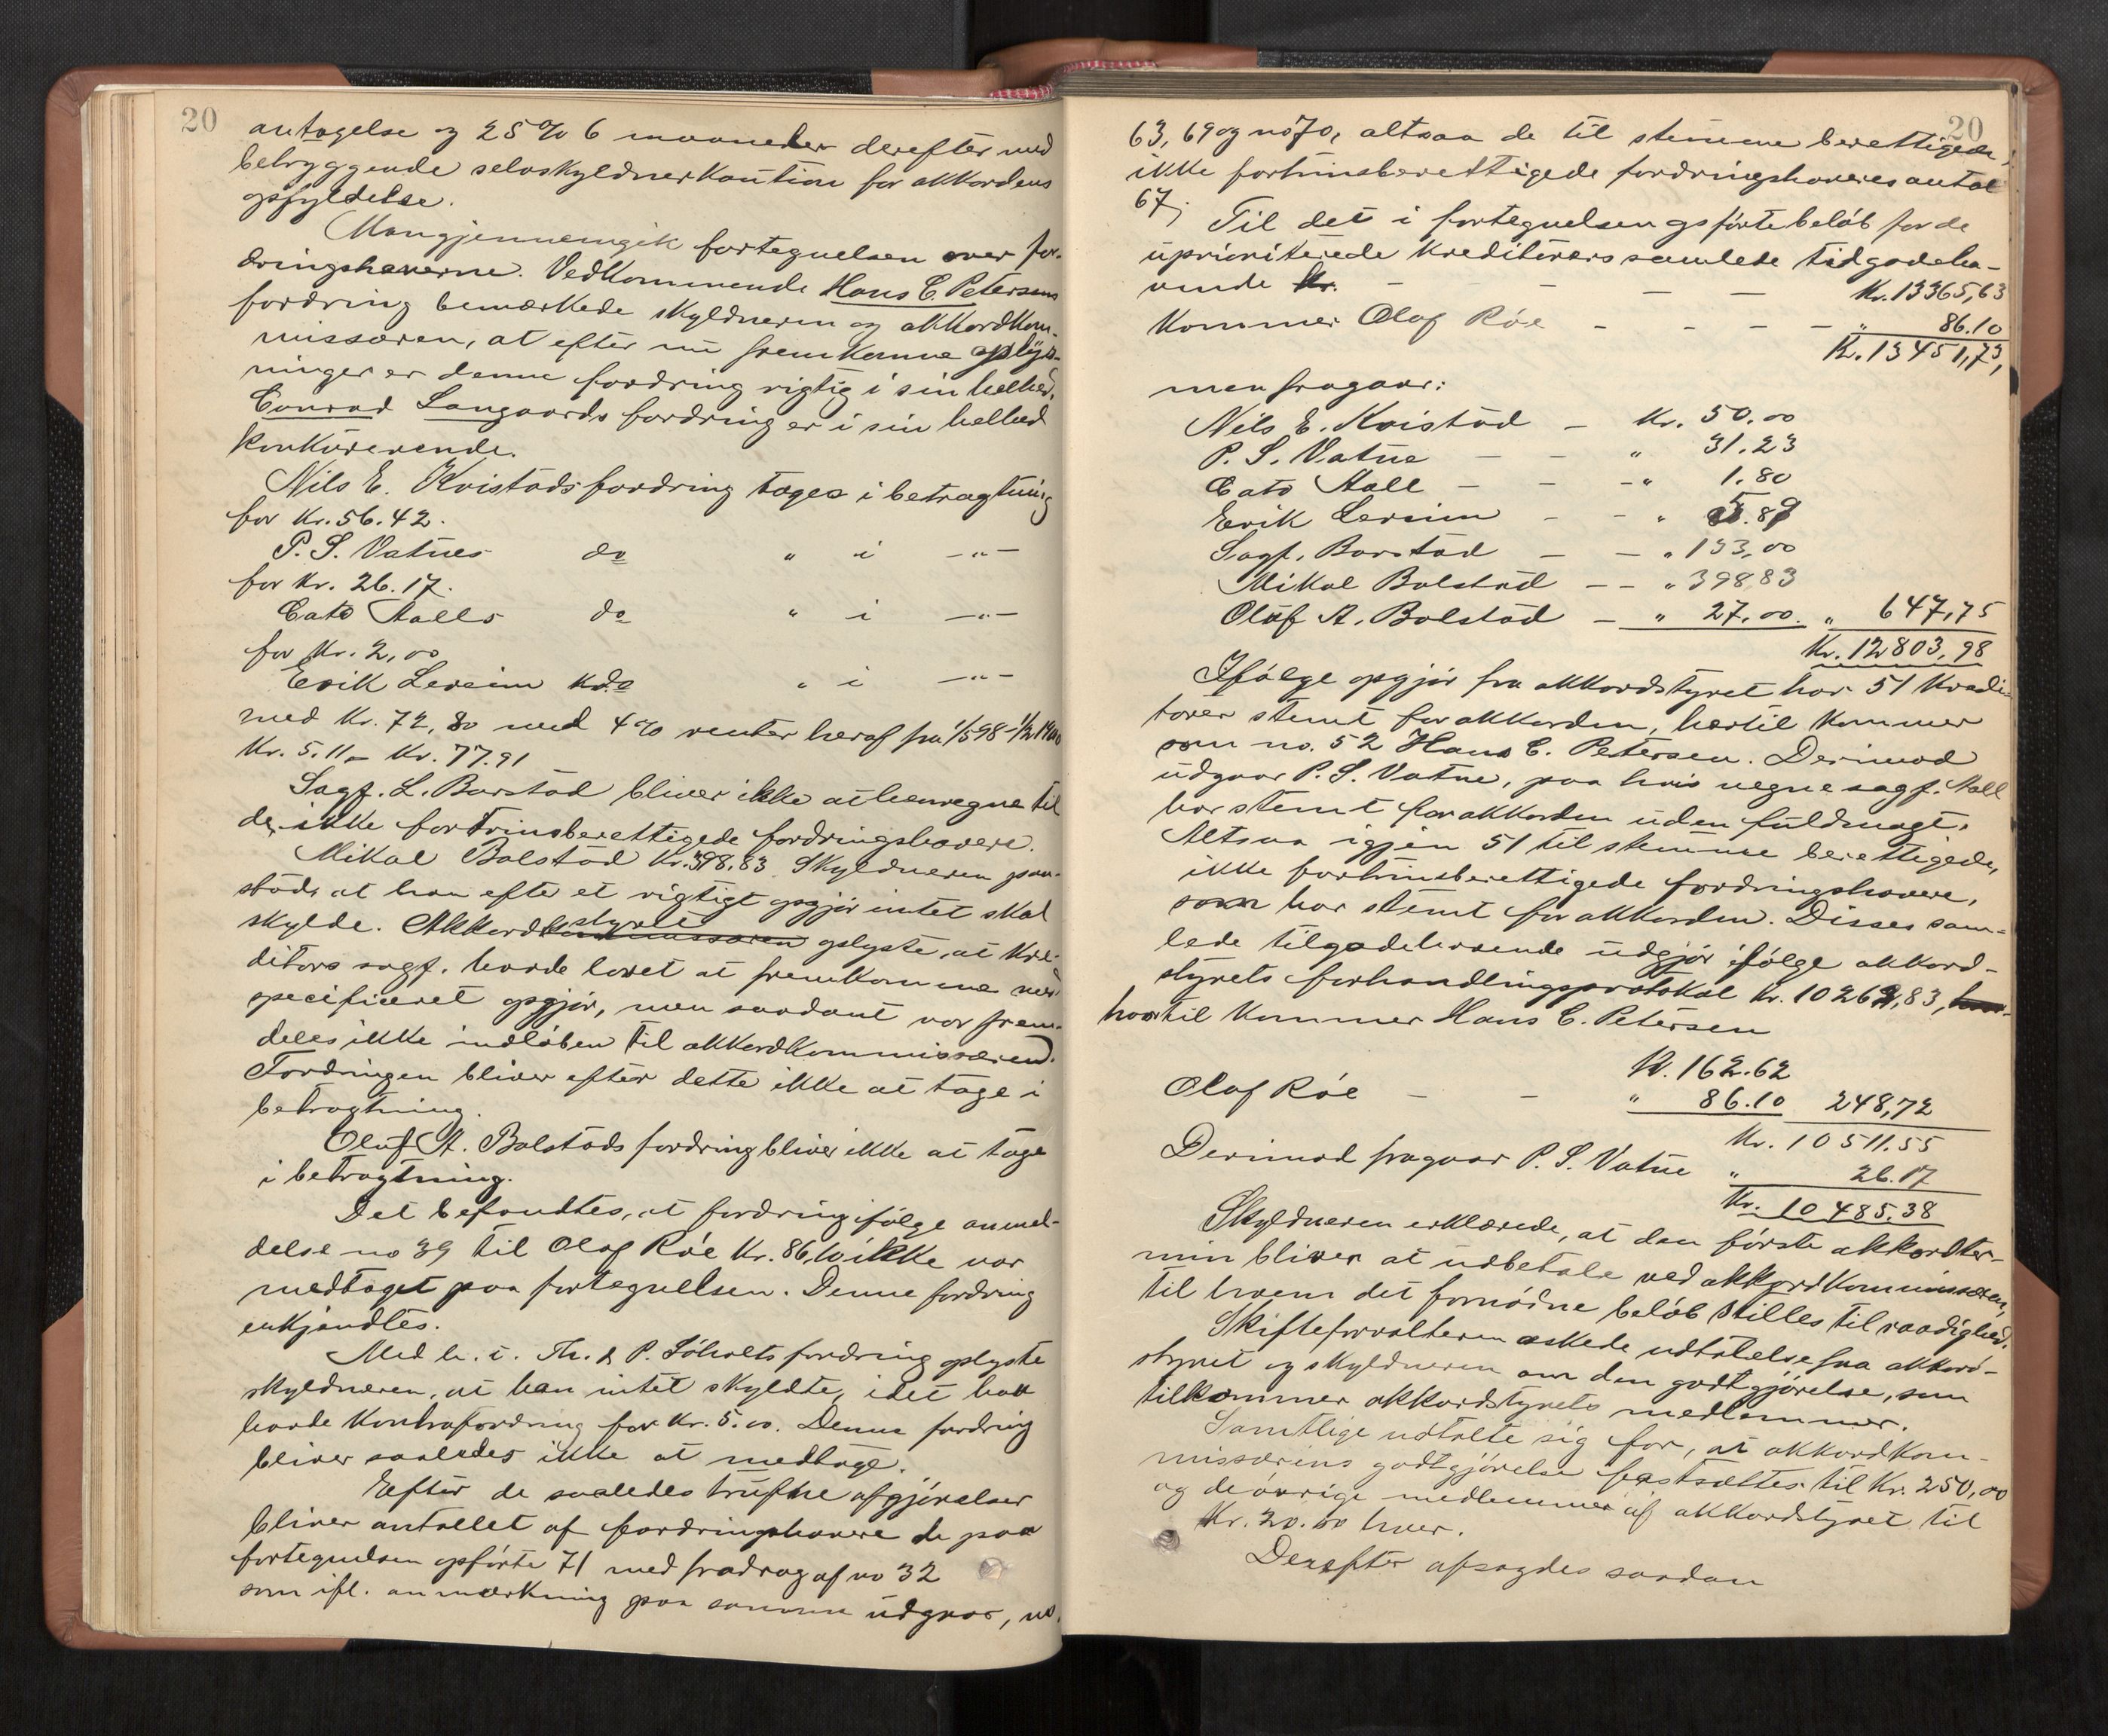 20
antagelse og 25 % 6 maaneder derefter med
betryggende selvskyldnerkaution for akkordens
opfyldelse.
Mangjennemgik fortegnelsen over for-
dringshaverne. Vedkommende Hans C. Petersens
fordring bemærkede skyldneren og akkordkom-
missæren, at efter nu fremkomne oplys-
ninger er denne fordring rigtig i sin helhed.
Conrad Langaards fordring er i sin helhed
konkurerende.
Nils E. Kvistads fordring tages i betragtning
for Kr. 56.42.
P. S. Vatnes do " i -"-
for Kr. 26.17.
Cato Aalls do " i -"-
for Kr. 2,00
Erik Lereim do " i -"-
med Kr. 72,80 med 4 % renter heraf fra 1/5 98 - 1/2 1900
Kr. 5.11 = Kr. 77.91
Sagf. L. Barstad bliver ikke at henregne til
de ikke fortrinsberettigede fordringshavere.
Mikal Bolstad Kr. 398.83. Skyldneren paa-
stod, at han efter et rigtigt opgjør intet skal
skylde. Akkordkommissæren styret oplyste, at kre-
ditors sagf. havde lovet at fremkomme med
specificeret opgjør, men saadant var frem-
deles ikke indløben til akkordkommissæren.
Fordringen bliver efter dette ikke at tage i
betragtning.
Oluf A. Bolstads fordring bliver ikke at tage
i betragtning.
Det befandtes, at fordring ifølge anmel-
delse no 39 til Olaf Róe Kr. 86,10 ikke var
medtaget paa fortegnelsen. Denne fordring
erkjendtes.
Med h. t. Th. & P. Søholts fordring oplyste
skyldneren, at han intet skyldte, idet han
havde Kontrafordring for Kr. 5.00. Denne fordring
bliver saaledes ikke at medtage.
Efter de saaledes trufne afgjørelser
bliver antallet af fordringshavere de paa
fortegnelsen opførte 71 med fradrag af no 32
som ifl. anmærkning paa samme udgaar, no.
20
63, 69 og no 70, altsaa de til stemme berettigede,
ikke fortrinsberettigede fordringshaveres antal
67.
Til det i fortegnelsen opførte beløb for de
uprioriterede kreditorers samlede tilgodeha-
vende Kr. - - - - Kr. 13365,63
Kommer Olaf Róe - - - - " 86.10
Kr. 13451,73,
men fragaar:
Nils E. Kvistad - Kr. 50.00
P. S. Vatne - - " 31.23
Cato Aall - - - " 1.80
Erik Lereim - - " 5.89
Sagf. Barstad - - " 133,00
Mikal Bolstad - - " 398.83
Oluf A. Bolstad - " 27.00. " 647,75
Kr. 12803,98
Ifølge opgjør fra akkordstyret har 51 kredi-
torer stemt for akkorden, hertil kommer
som no. 52 Hans C. Petersen. Derimod
udgaar P. S. Vatne, paa hvis vegne sagf. Aall
har stemt for akkorden uden fuldmagt.
Altsaa igjen 51 til stemme berettigede,
ikke fortrinsberettigede fordringshavere,
som har stemt for akkorden. Disses sam-
lede tilgodehavende udgjør ifølge akkord-
styrets forhandlingsprotokol Kr. 10262,83,
hvortil kommer Hans C. Petersen
Kr. 162.62
Olaf Róe - - " 86.10 248,72
Kr. 10511.55
Derimod fragaar P. S. Vatne " 26.17
Kr. 10485.38
Skyldneren erklærede, at den første akkordter-
min bliver at udbetale ved akkordkommissæren,
til hvem det fornødne beløb stilles til raadighed.
Skifteforvalteren æskede udtalelse fra akkord-
styret og skyldneren om den godtgjørelse, som
tilkommer akkordstyrets medlemmer.
Samtlige udtalte sig for, at akkordkom-
missærens godtgjørelse fastsættes til Kr. 250,00
og de øvrige medlemmer af akkordstyret til
Kr. 20.00 hver.
Derefter afsagdes saadan